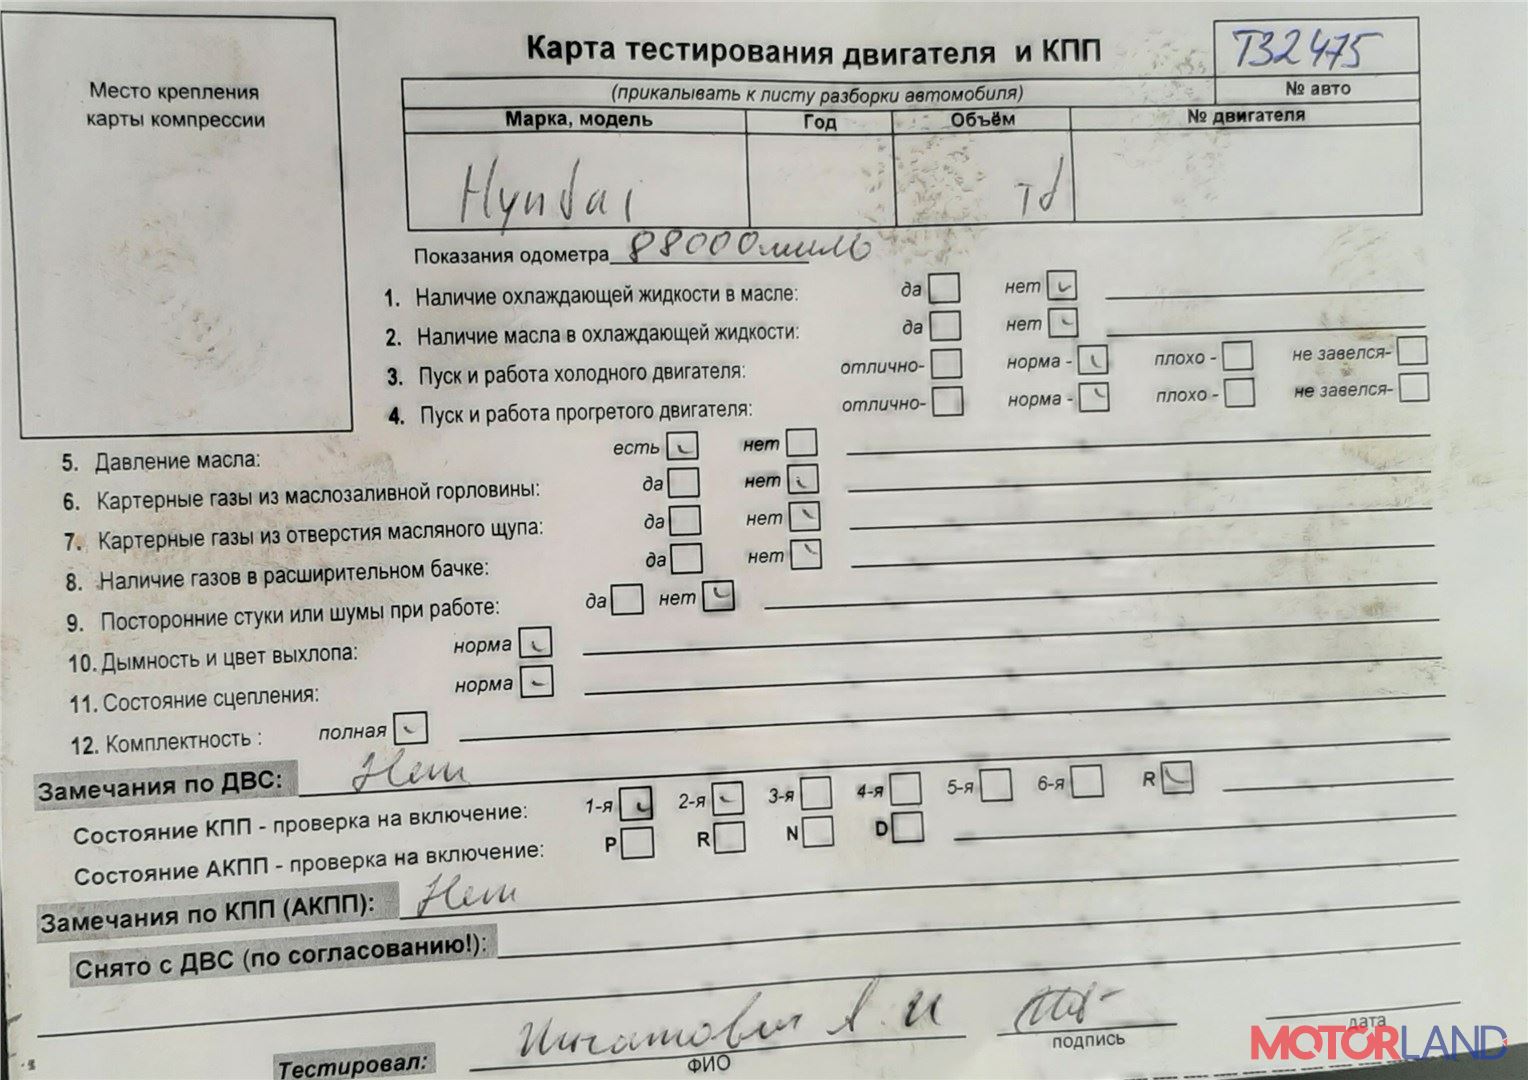 Место крепления
карты компрессии
Карта тестирования двигателя и КПП
T32475
(прикалывать к листу разборки автомобиля)
№ авто
Марка, модель Год Объём № двигателя
Hyundai td
Показания одометра 88000миль
1. Наличие охлаждающей жидкости в масле: да нет
2. Наличие масла в охлаждающей жидкости: да нет
3. Пуск и работа холодного двигателя: отлично- норма - плохо - не завелся-
4. Пуск и работа прогретого двигателя: отлично- норма - плохо - не завелся-
5. Давление масла: есть нет
6. Картерные газы из маслозаливной горловины: да нет
7. Картерные газы из отверстия масляного щупа: да нет
8. Наличие газов в расширительном бачке: да нет
9. Посторонние стуки или шумы при работе: да нет
10. Дымность и цвет выхлопа: норма
11. Состояние сцепления: норма
12. Комплектность : полная
Замечания по ДВС: Нет
Состояние КПП - проверка на включение: 1-я 2-я 3-я 4-я 5-я 6-я R
Состояние АКПП - проверка на включение: P R N D
Замечания по КПП (АКПП): Нет
Снято с ДВС (по согласованию!):
Тестировал: Игнатович А.И
ФИО подпись дата
MOTORLAND